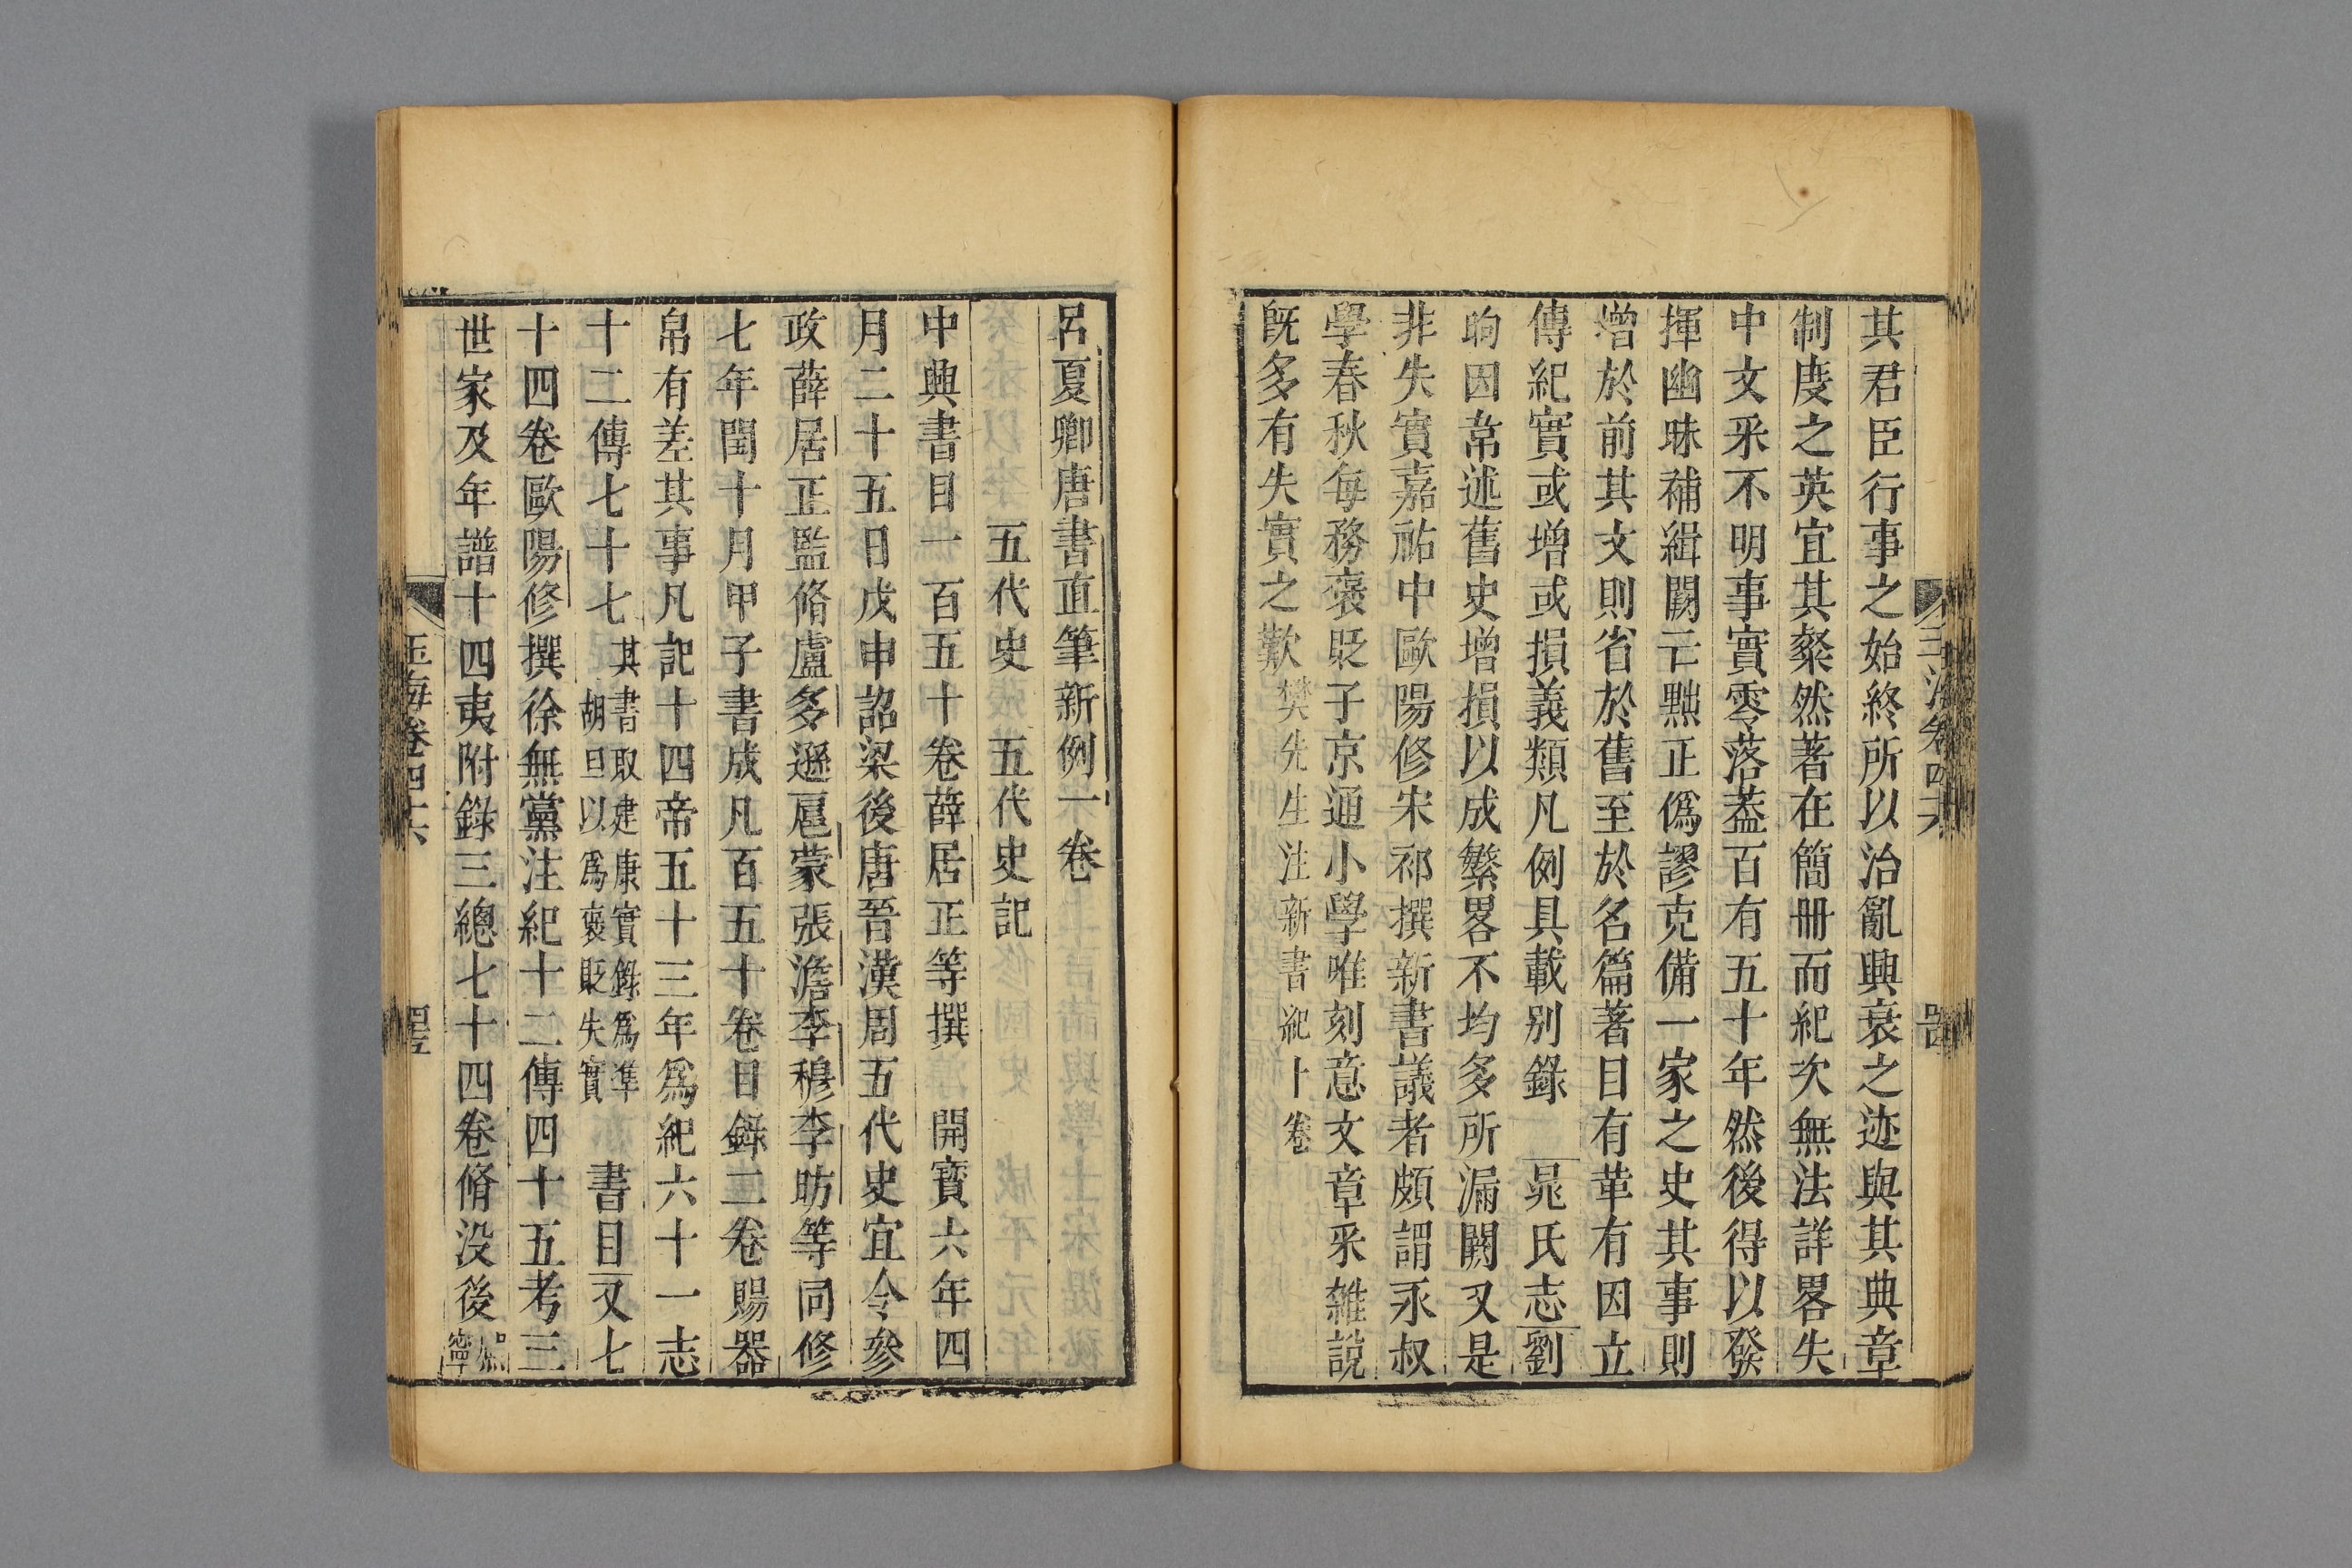 其君臣行事之始終所以治亂興衰之迹與其典章
制度之英宜其粲然著在簡冊而紀次無法詳畧失
中文釆不明事實零落葢百有五十年然後得以發
揮幽昧補緝闕亡黜正僞謬克備一家之史其事則
增於前其文則省於舊至於名篇著目有革有因立
傳紀實或增或損義類凡例具載别錄 晁氏志劉
昫因韋述舊史增損以成繁畧不均多所漏闕又是
非失實嘉祐中歐陽修宋祁撰新書議者頗謂永叔
學春秋每務褒貶子京通小學唯刻意文章釆雜說
既多有失實之歎樊先生注新書紀十卷
呂夏卿唐書直筆新例一卷
五代史 五代史記
中興書目一百五十卷薛居正等撰 開寳六年四
月二十五日戊申詔梁後唐晉漢周五代史宜令參
政薛居正監脩盧多遜扈蒙張澹李穆李昉等同修
七年閏十月甲子書成凡百五十卷目錄二卷賜器
帛有差其事凡記十四帝五十三年爲紀六十一志
十二傳七十七其書取建康實錄爲準胡旦以爲褒貶失實 書目又七
十四卷歐陽修撰徐無黨注紀十二傳四十五考三
世家及年譜十四夷附錄三總七十四卷脩没後熈寧
玉海卷四十六